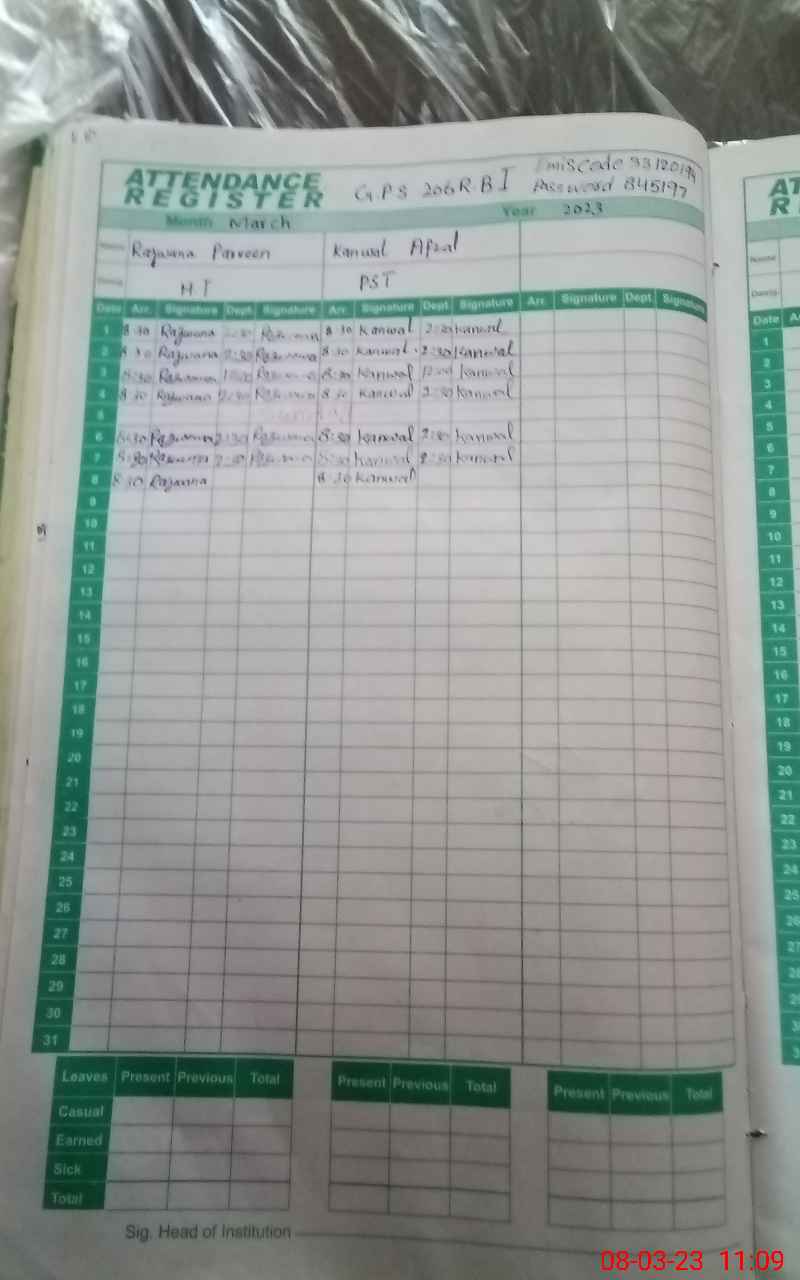 ATTENDANCE
REGISTER
G.P.S 206 R.B I
EmisCode 33120194
Password 845197
Month March Year 2023
Name Rajwana Parveen Kanwal Afzal
Desig. HT PST
Date Arr. Signature Dept. Signature Arr. Signature Dept Signature Arr. Signature Dept Signature
1 8 30 Rajwana 2:30 Rajwana 8 30 Kanwal 2:30 Kanwal
2 8 30 Rajwana 2:30 Rajwana 8:30 Kanwal 2:30 Kanwal
3 8:30 Rajwana 12:00 Rajwana 8:30 Kanwal 12:00 Kanwal
4 8 30 Rajwana 2:30 Rajwana 8 30 Kanwal 2:30 Kanwal
5 Sunday
6 8:30 Rajwana 2:30 Rajwana 8:30 Kanwal 2:30 Kanwal
7 8:30 Rajwana 2:30 Rajwana 8:30 Kanwal 2:30 Kanwal
8 8 30 Rajwana 8 30 Kanwal
9
10
11
12
13
14
15
16
17
18
19
20
21
22
23
24
25
26
27
28
29
30
31
Leaves Present Previous Total Present Previous Total Present Previous Total
Casual
Earned
Sick
Total
Sig. Head of Institution
AT
R
Name
Desig.
Date A
1
2
3
4
5
6
7
8
9
10
11
12
13
14
15
16
17
18
19
20
21
22
23
24
25
26
27
28
29
08-03-23 11:09